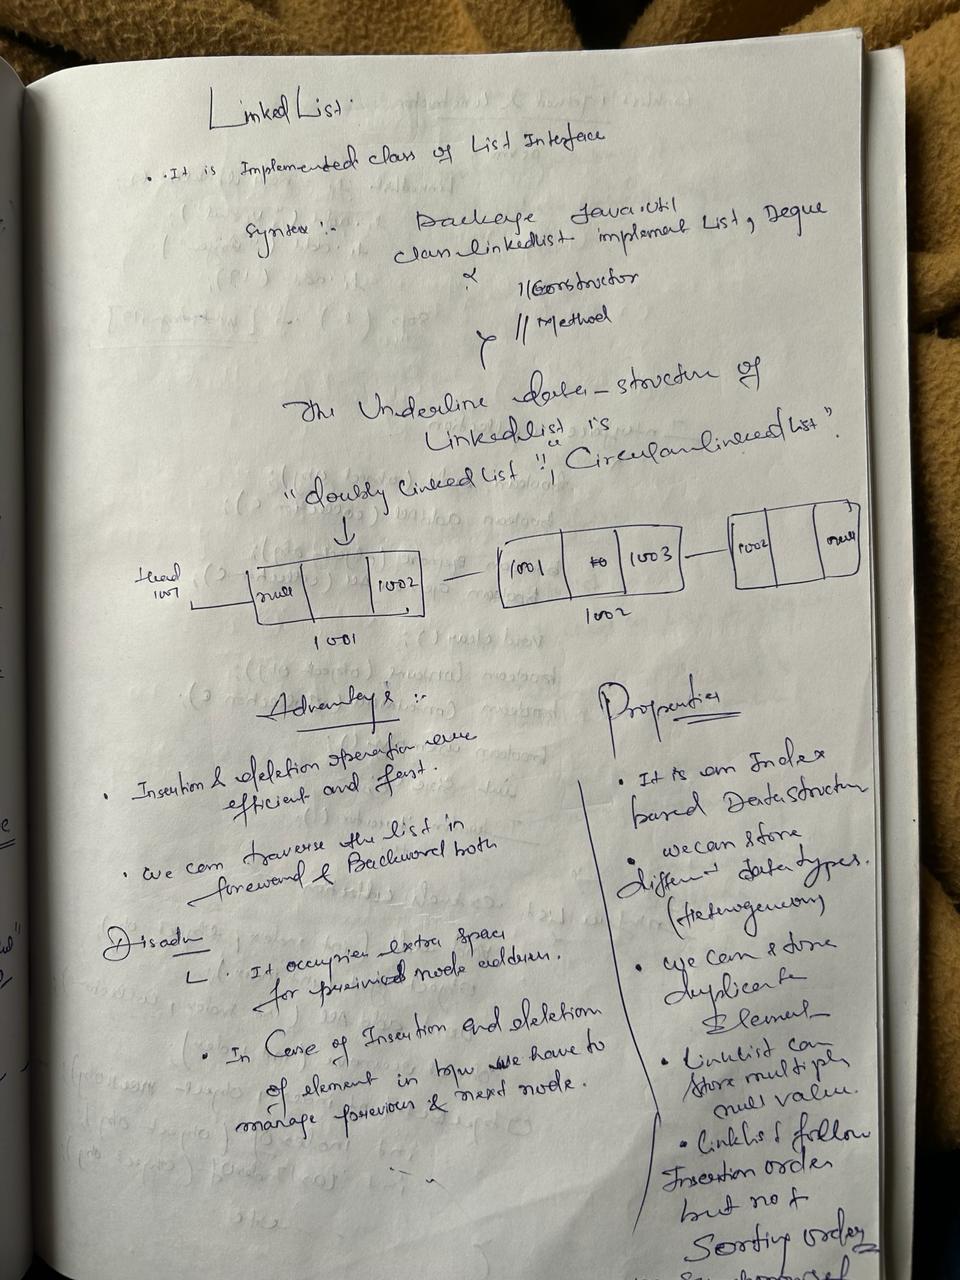 Linked List:
. . It is Implemented class of List Interface
Syntax :- Package Java.util
class linkedlist implement List, Deque
{
// Constructor
// Method
}
The Underline data-structure of
Linkedlist is
"doubly linked list", "Circular linked list".
Head
1001
null 1002
1001
1001 10 1003
1002
1002 null
Advantages :-
. Insertion & deletion operation are
efficient and fast.
. we can traverse the list in
foreward & Backword both
Disadv
. It occupies extra space
for previous node address.
. In Case of Insertion and deletion
of element in b/w we have to
manage previous & next node.
Properties
. It is an Index
based Datastructure
. we can store
different data types.
(Heterogenous)
. we can store
duplicate
Element
. Linklist can
store multiple
null value.
. linklist follow
Insertion order
but not
Sorting order